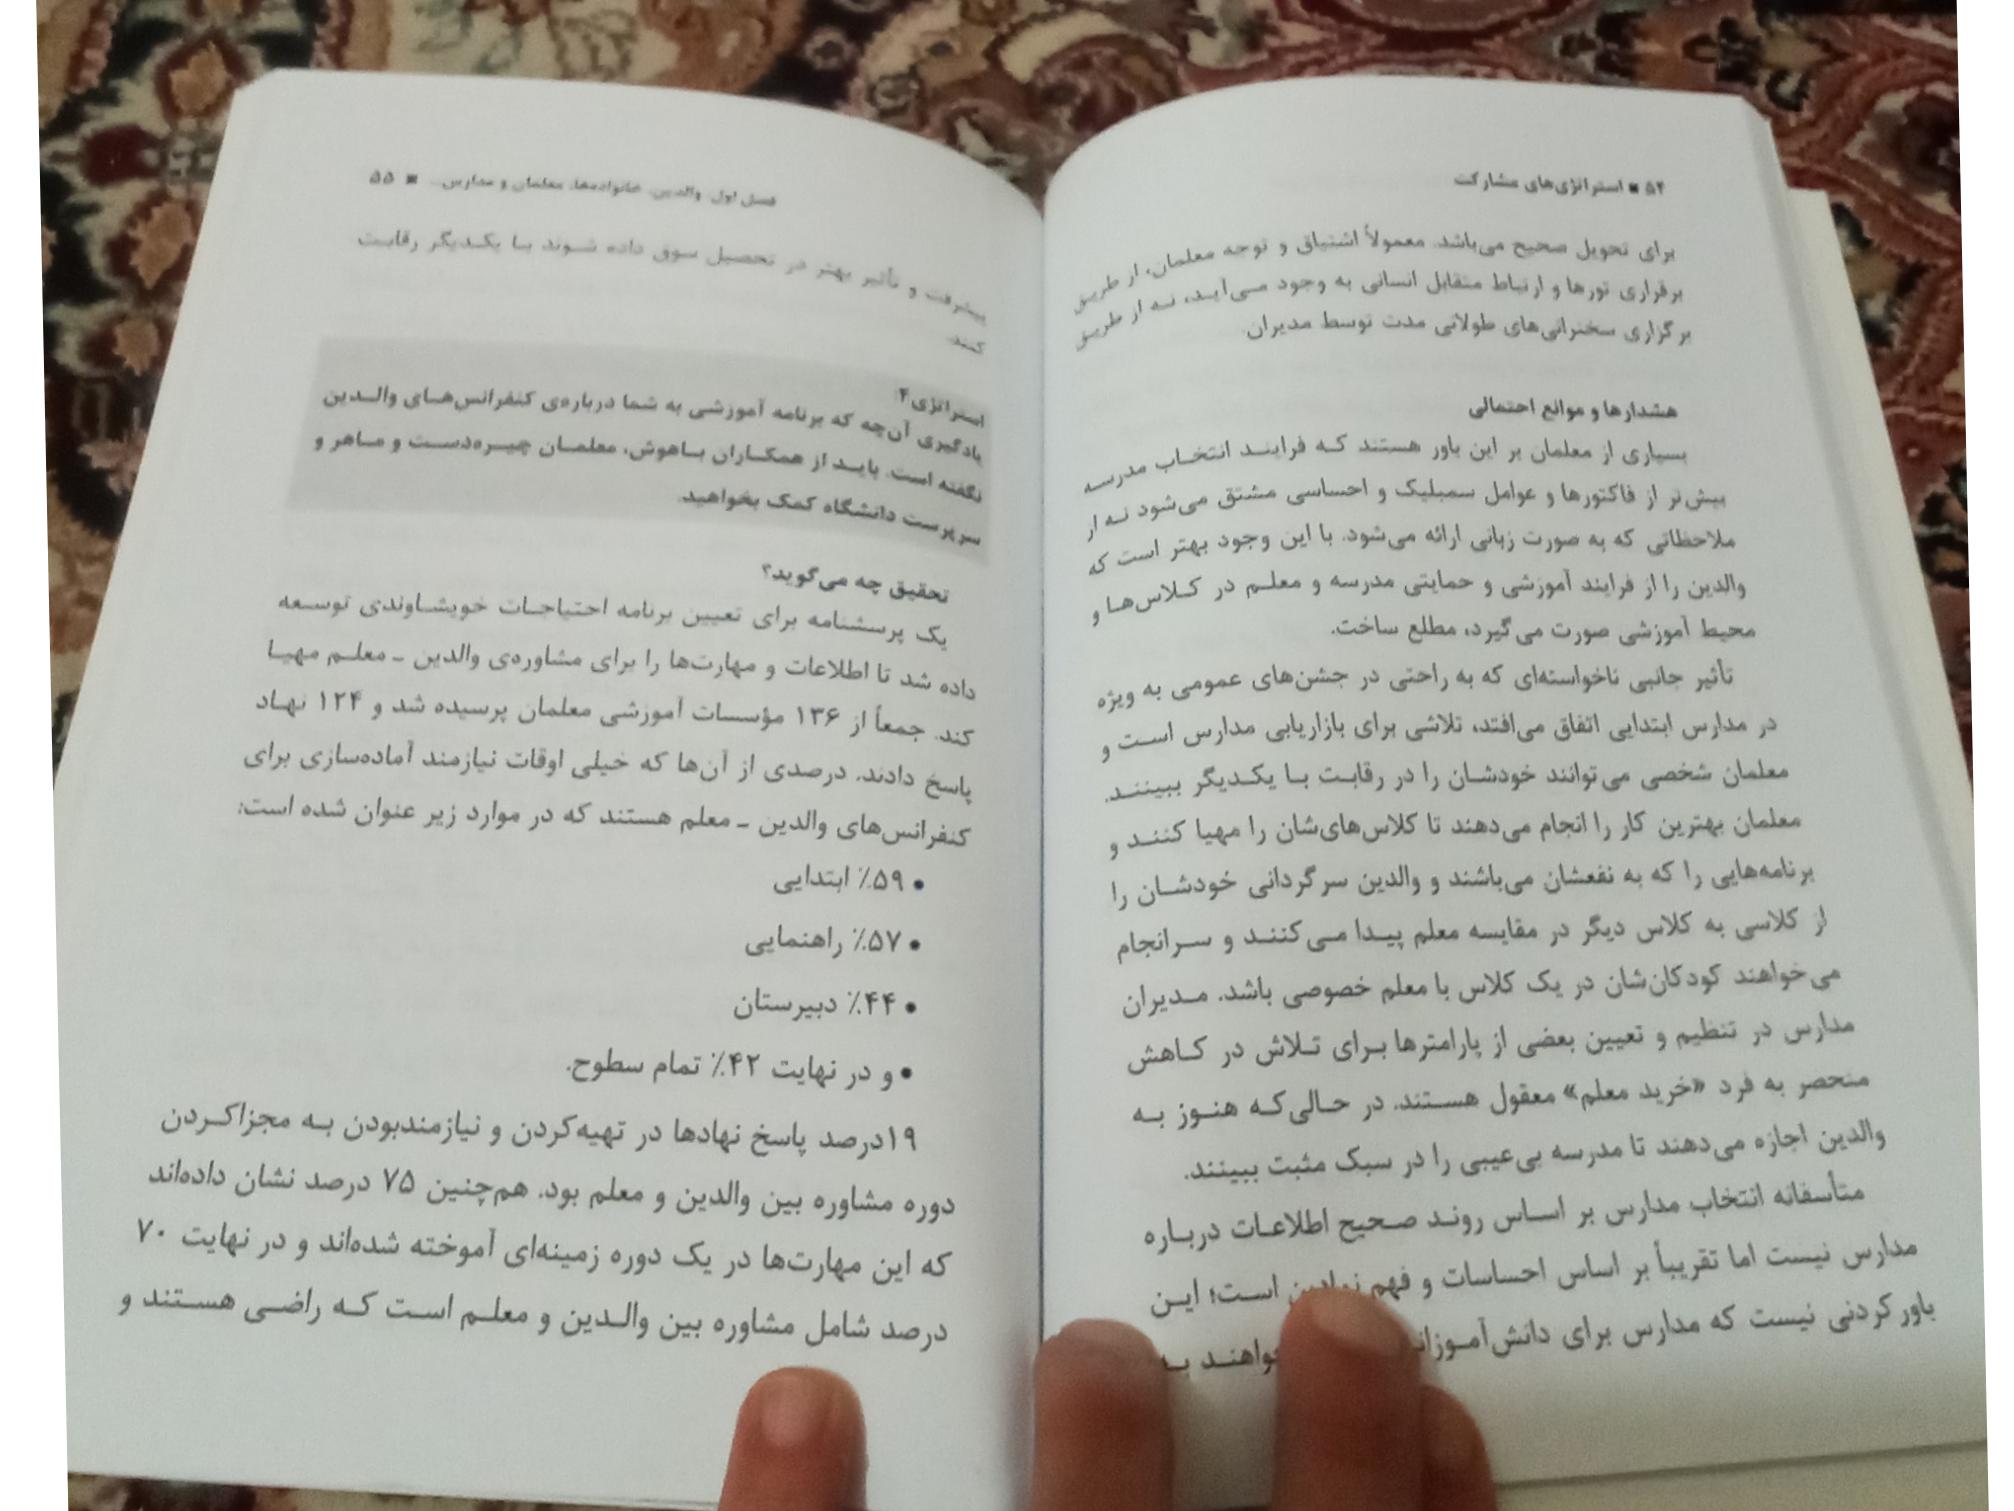 ۵۴ ■ استراتژی‌های مشارکت
برای تحویل صحیح می‌باشد. معمولاً اشتیاق و توجه معلمان، از طریق
برقراری تورها و ارتباط متقابل انسانی به وجود می‌آید، نه از طریق
برگزاری سخنرانی‌های طولانی مدت توسط مدیران.
هشدارها و موانع احتمالی
بسیاری از معلمان بر این باور هستند که فرایند انتخاب مدرسه
بیش‌تر از فاکتورها و عوامل سمبلیک و احساسی مشتق می‌شود نه از
ملاحظاتی که به صورت زبانی ارائه می‌شود. با این وجود بهتر است که
والدین را از فرایند آموزشی و حمایتی مدرسه و معلم در کلاس‌ها و
محیط آموزشی صورت می‌گیرد، مطلع ساخت.
تأثیر جانبی ناخواسته‌ای که به راحتی در جشن‌های عمومی به ویژه
در مدارس ابتدایی اتفاق می‌افتد، تلاشی برای بازاریابی مدارس است و
معلمان شخصی می‌توانند خودشان را در رقابت با یکدیگر ببینند.
معلمان بهترین کار را انجام می‌دهند تا کلاس‌های‌شان را مهیا کنند و
برنامه‌هایی را که به نفعشان می‌باشند و والدین سرگردانی خودشان را
از کلاسی به کلاس دیگر در مقایسه معلم پیدا می‌کنند و سرانجام
می‌خواهند کودکان‌شان در یک کلاس با معلم خصوصی باشد. مدیران
مدارس در تنظیم و تعیین بعضی از پارامترها برای تلاش در کاهش
منحصر به فرد «خرید معلم» معقول هستند. در حالی‌که هنوز به
والدین اجازه می‌دهند تا مدرسه بی‌عیبی را در سبک مثبت ببینند.
متأسفانه انتخاب مدارس بر اساس روند صحیح اطلاعات درباره
مدارس نیست اما تقریباً بر اساس احساسات و فهم نمادین است؛ این
باور کردنی نیست که مدارس برای به
فصل اول. والدین، خانواده‌ها، معلمان و مدارس... ■ ۵۵
پیشرفت و تأثیر بهتر در تحصیل سوق داده شوند با یکدیگر رقابت
کنند.
استراتژی ۴:
یادگیری آن‌چه که برنامه آموزشی به شما درباره‌ی کنفرانس‌های والدین
نگفته است. باید از همکاران باهوش، معلمان چیره‌دست و ماهر و
سرپرست دانشگاه کمک بخواهید.
تحقیق چه می‌گوید؟
یک پرسشنامه برای تعیین برنامه احتیاجات خویشاوندی توسعه
داده شد تا اطلاعات و مهارت‌ها را برای مشاوره‌ی والدین ـ معلم مهیا
کند. جمعاً از ۱۳۶ مؤسسات آموزشی معلمان پرسیده شد و ۱۲۴ نهاد
پاسخ دادند. درصدی از آن‌ها که خیلی اوقات نیازمند آماده‌سازی برای
کنفرانس‌های والدین ـ معلم هستند که در موارد زیر عنوان شده است:
• ۵۹٪ ابتدایی
• ۵۷٪ راهنمایی
• ۴۴٪ دبیرستان
• و در نهایت ۴۲٪ تمام سطوح.
۱۹درصد پاسخ نهادها در تهیه‌کردن و نیازمندبودن به مجزاکردن
دوره مشاوره بین والدین و معلم بود. هم‌چنین ۷۵ درصد نشان داده‌اند
که این مهارت‌ها در یک دوره زمینه‌ای آموخته شده‌اند و در نهایت ۷۰
درصد شامل مشاوره بین والدین و معلم است که راضی هستند و